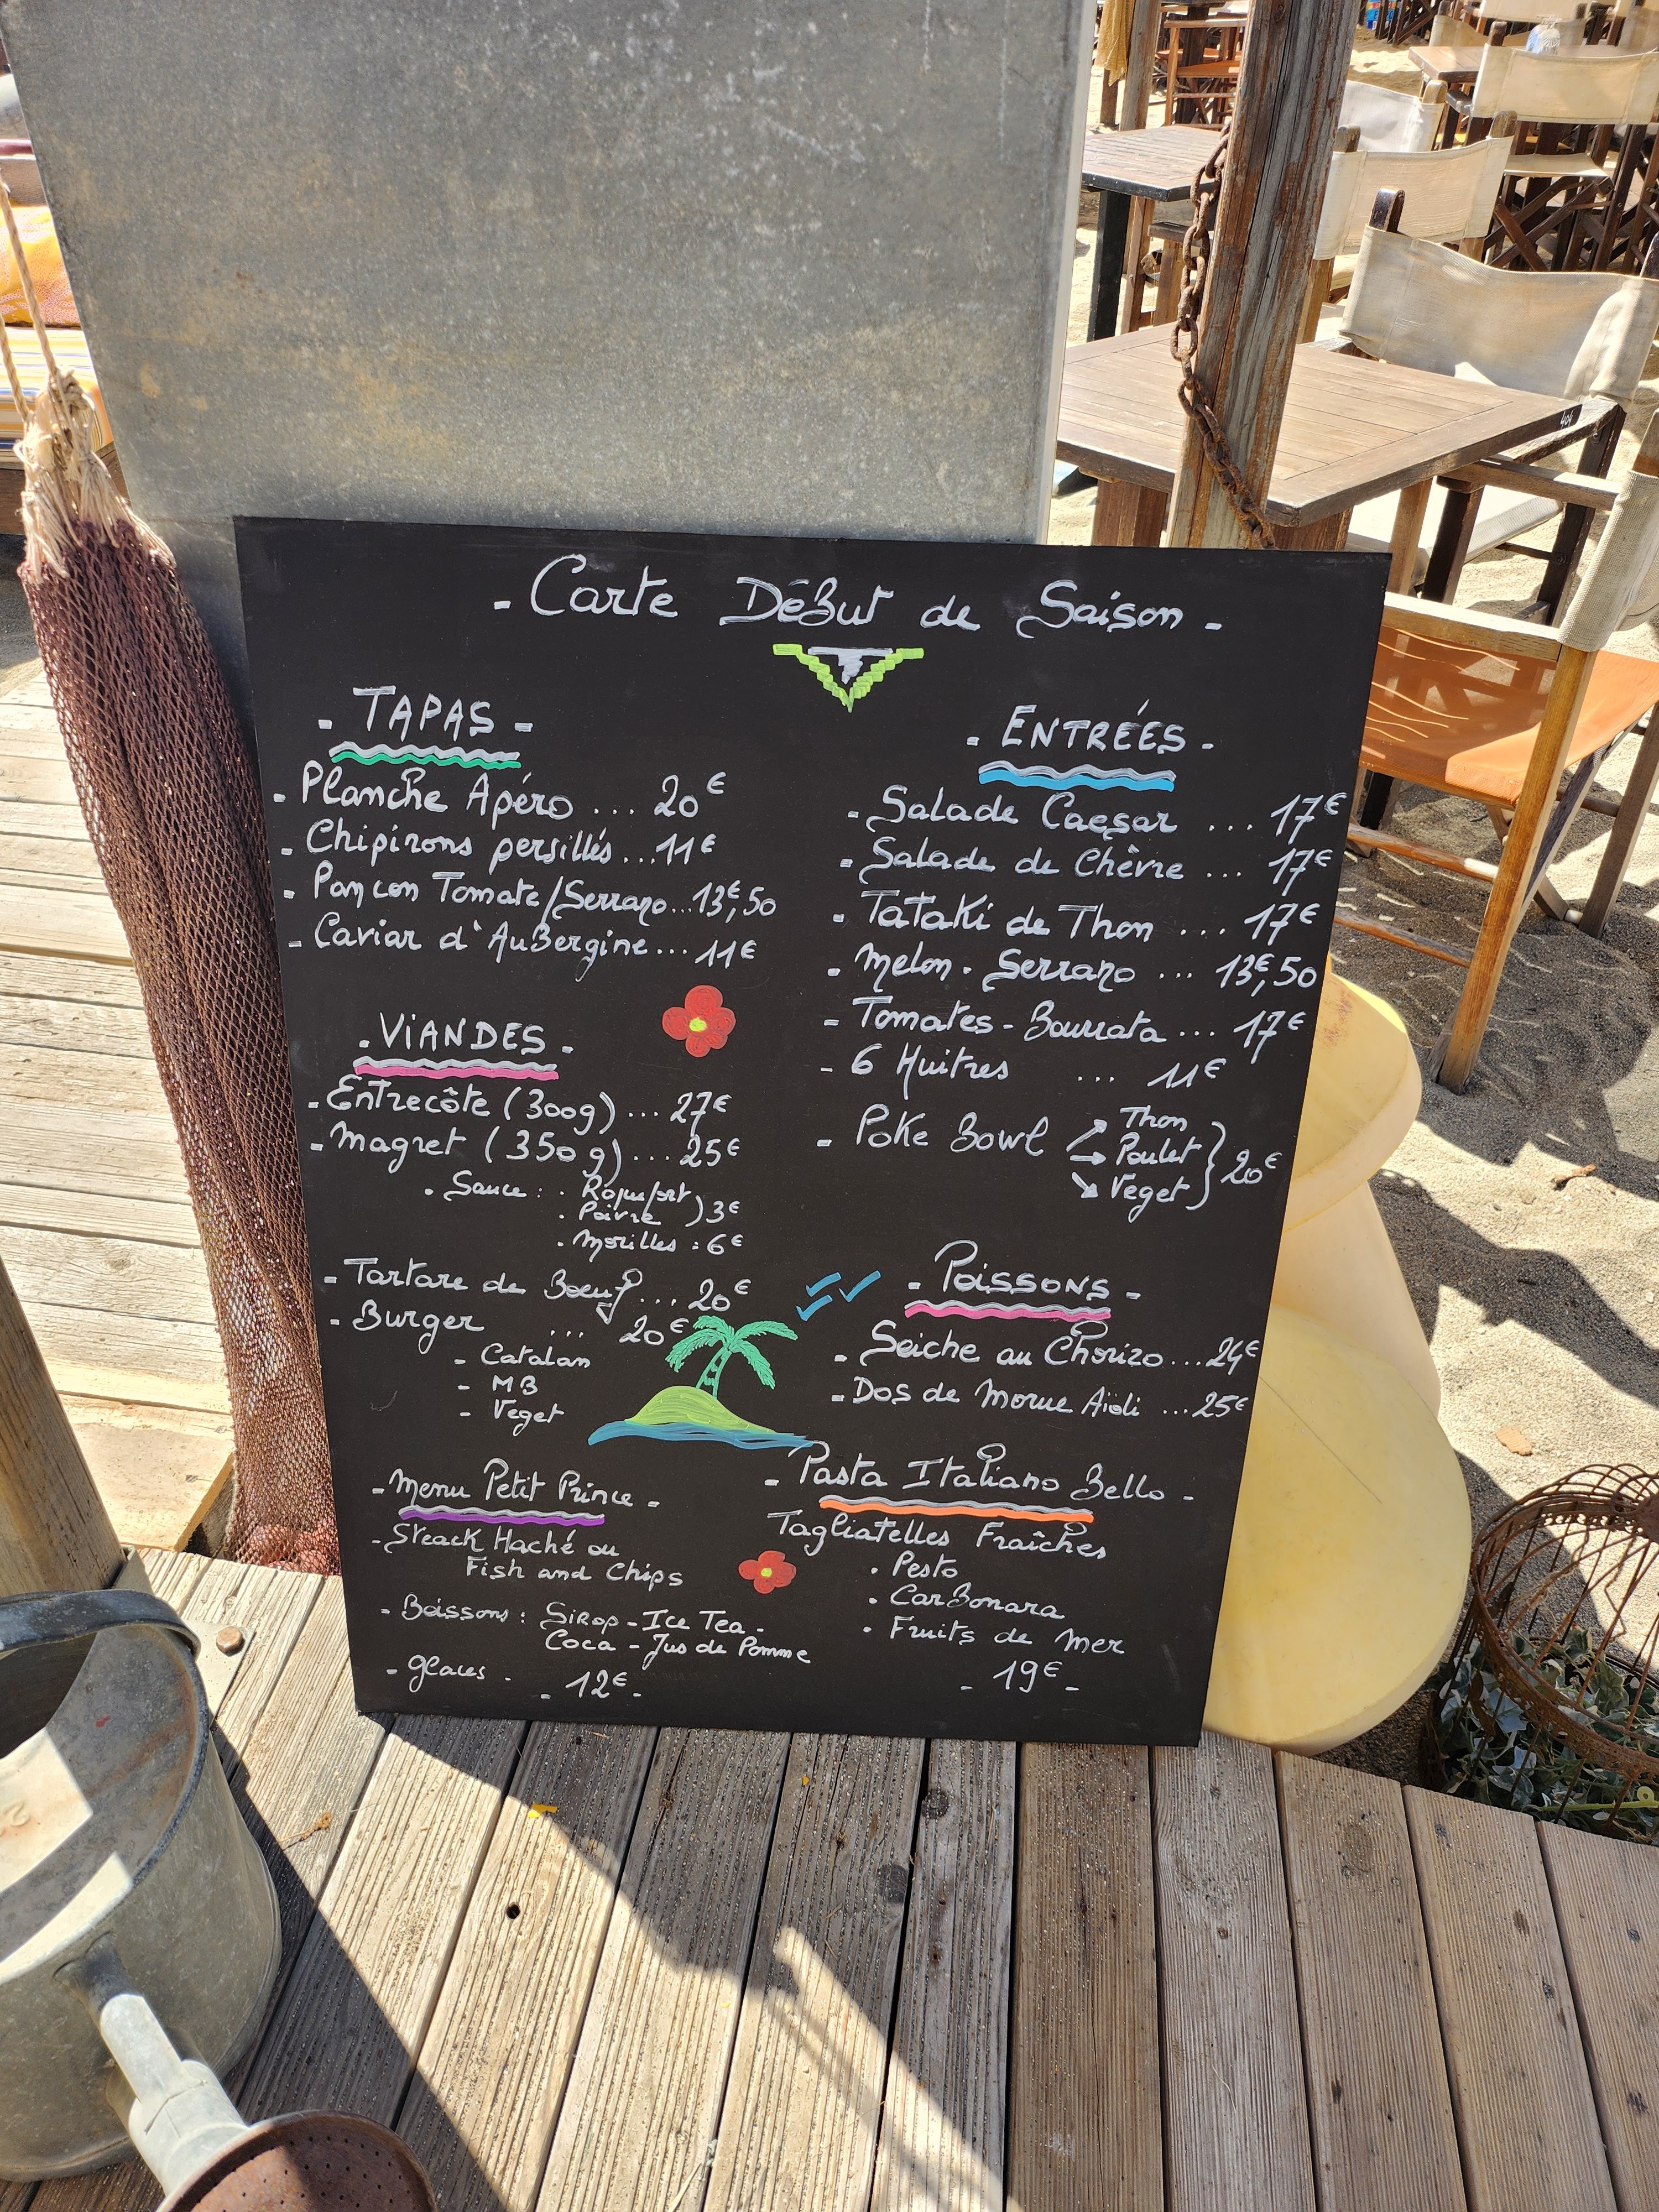 - Carte Début de Saison -
- TAPAS -
- Planche Apéro ... 20€
- Chipirons persillés ... 11€
- Pan con Tomate/Serrano ... 13€,50
- Caviar d'Aubergine ... 11€
- VIANDES -
- Entrecôte (300g) ... 27€
- Magret (350g) ... 25€
. Sauce : . Roquefort
. Poivre ) 3€
. Morilles : 6€
- Tartare de Boeuf ... 20€
- Burger ... 20€
- Catalan
- MB
- Veget
- Menu Petit Prince -
- Steack Haché ou
Fish and Chips
- Boissons : Sirop - Ice Tea -
Coca - Jus de Pomme
- Glaces -
- 12€ -
- ENTRÉES -
- Salade Caesar ... 17€
- Salade de Chèvre ... 17€
- Tataki de Thon ... 17€
- Melon - Serrano ... 13€,50
- Tomates - Bourrata ... 17€
- 6 Huitres ... 11€
- Poke Bowl → Thon
→ Poulet } 20€
→ Veget
- Poissons -
- Seiche au Chorizo ... 24€
- Dos de Morue Aïoli ... 25€
- Pasta Italiano Bello -
Tagliatelles Fraîches
. Pesto
. Carbonara
. Fruits de Mer
- 19€ -